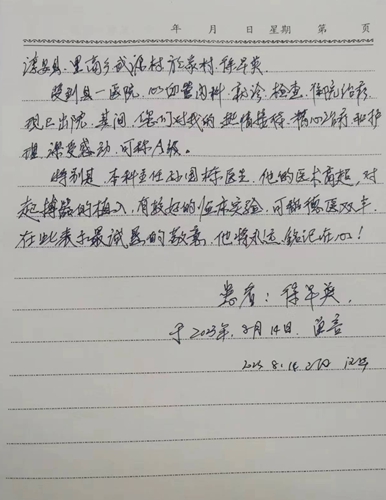 年 月 日 星期 第 页
里南乡 村 村 徐早英
受到县一医院 心血管内科 初诊 检查 住院治疗
现已出院 其间 你们对我的 热情接待 精心治疗和护
理 深受感动 可称A级。
特别是 本科主任 国栋医生 他的医术高超 对
起搏器的植入 有较好的临床实验 可称德医双丰
在此表示最诚恳的敬意 他将永远铭记在心!
患者:徐早英
于2023年 8月14日
8.14